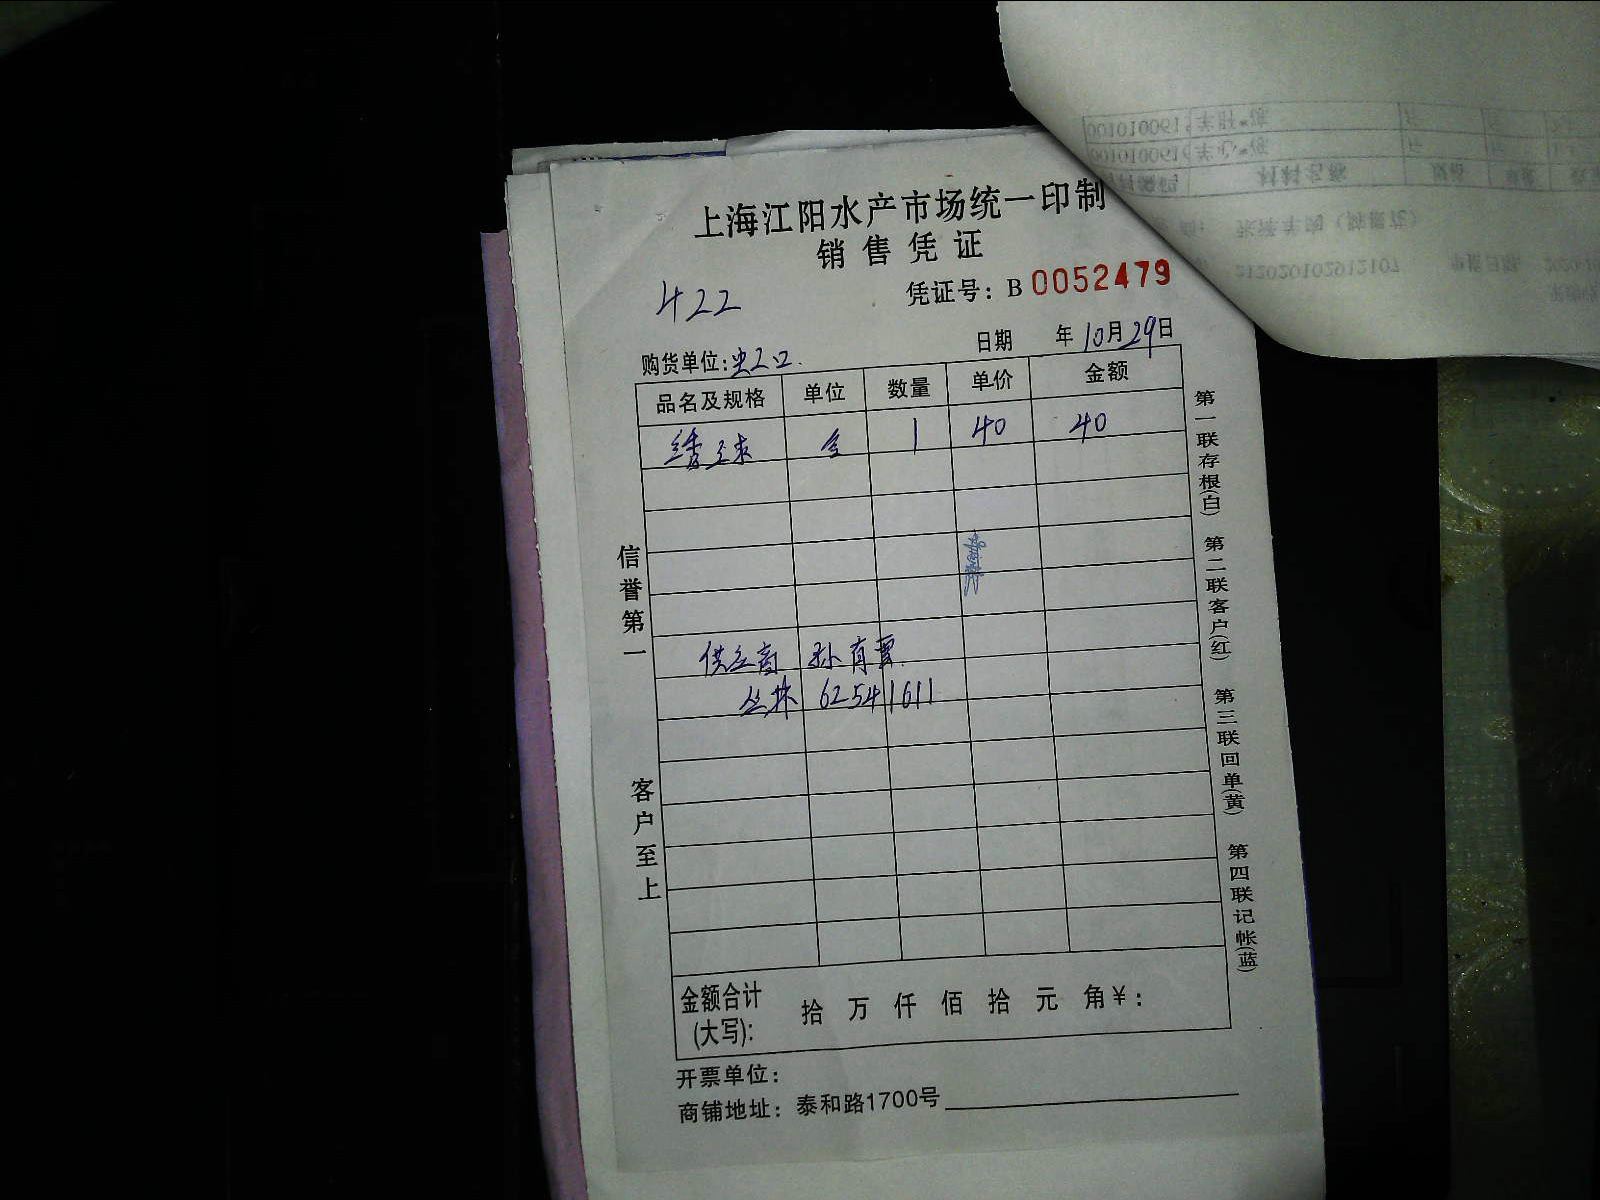 上海江阳水产市场统一印制
销售凭证
422
凭证号：B 0052479
日期 年10月29日
购货单位:虹口.
品名及规格 单位 数量 单价 金额
绣球 1 40 40
供应商 孙育
丛林 62541611
信誉第一
客户至上
第一联存根(白) 第二联客户(红) 第三联回单(黄) 第四联记帐(蓝)
金额合计(大写): 拾 万 仟 佰 拾 元 角¥：
开票单位：
商铺地址：泰和路1700号
212020102912107